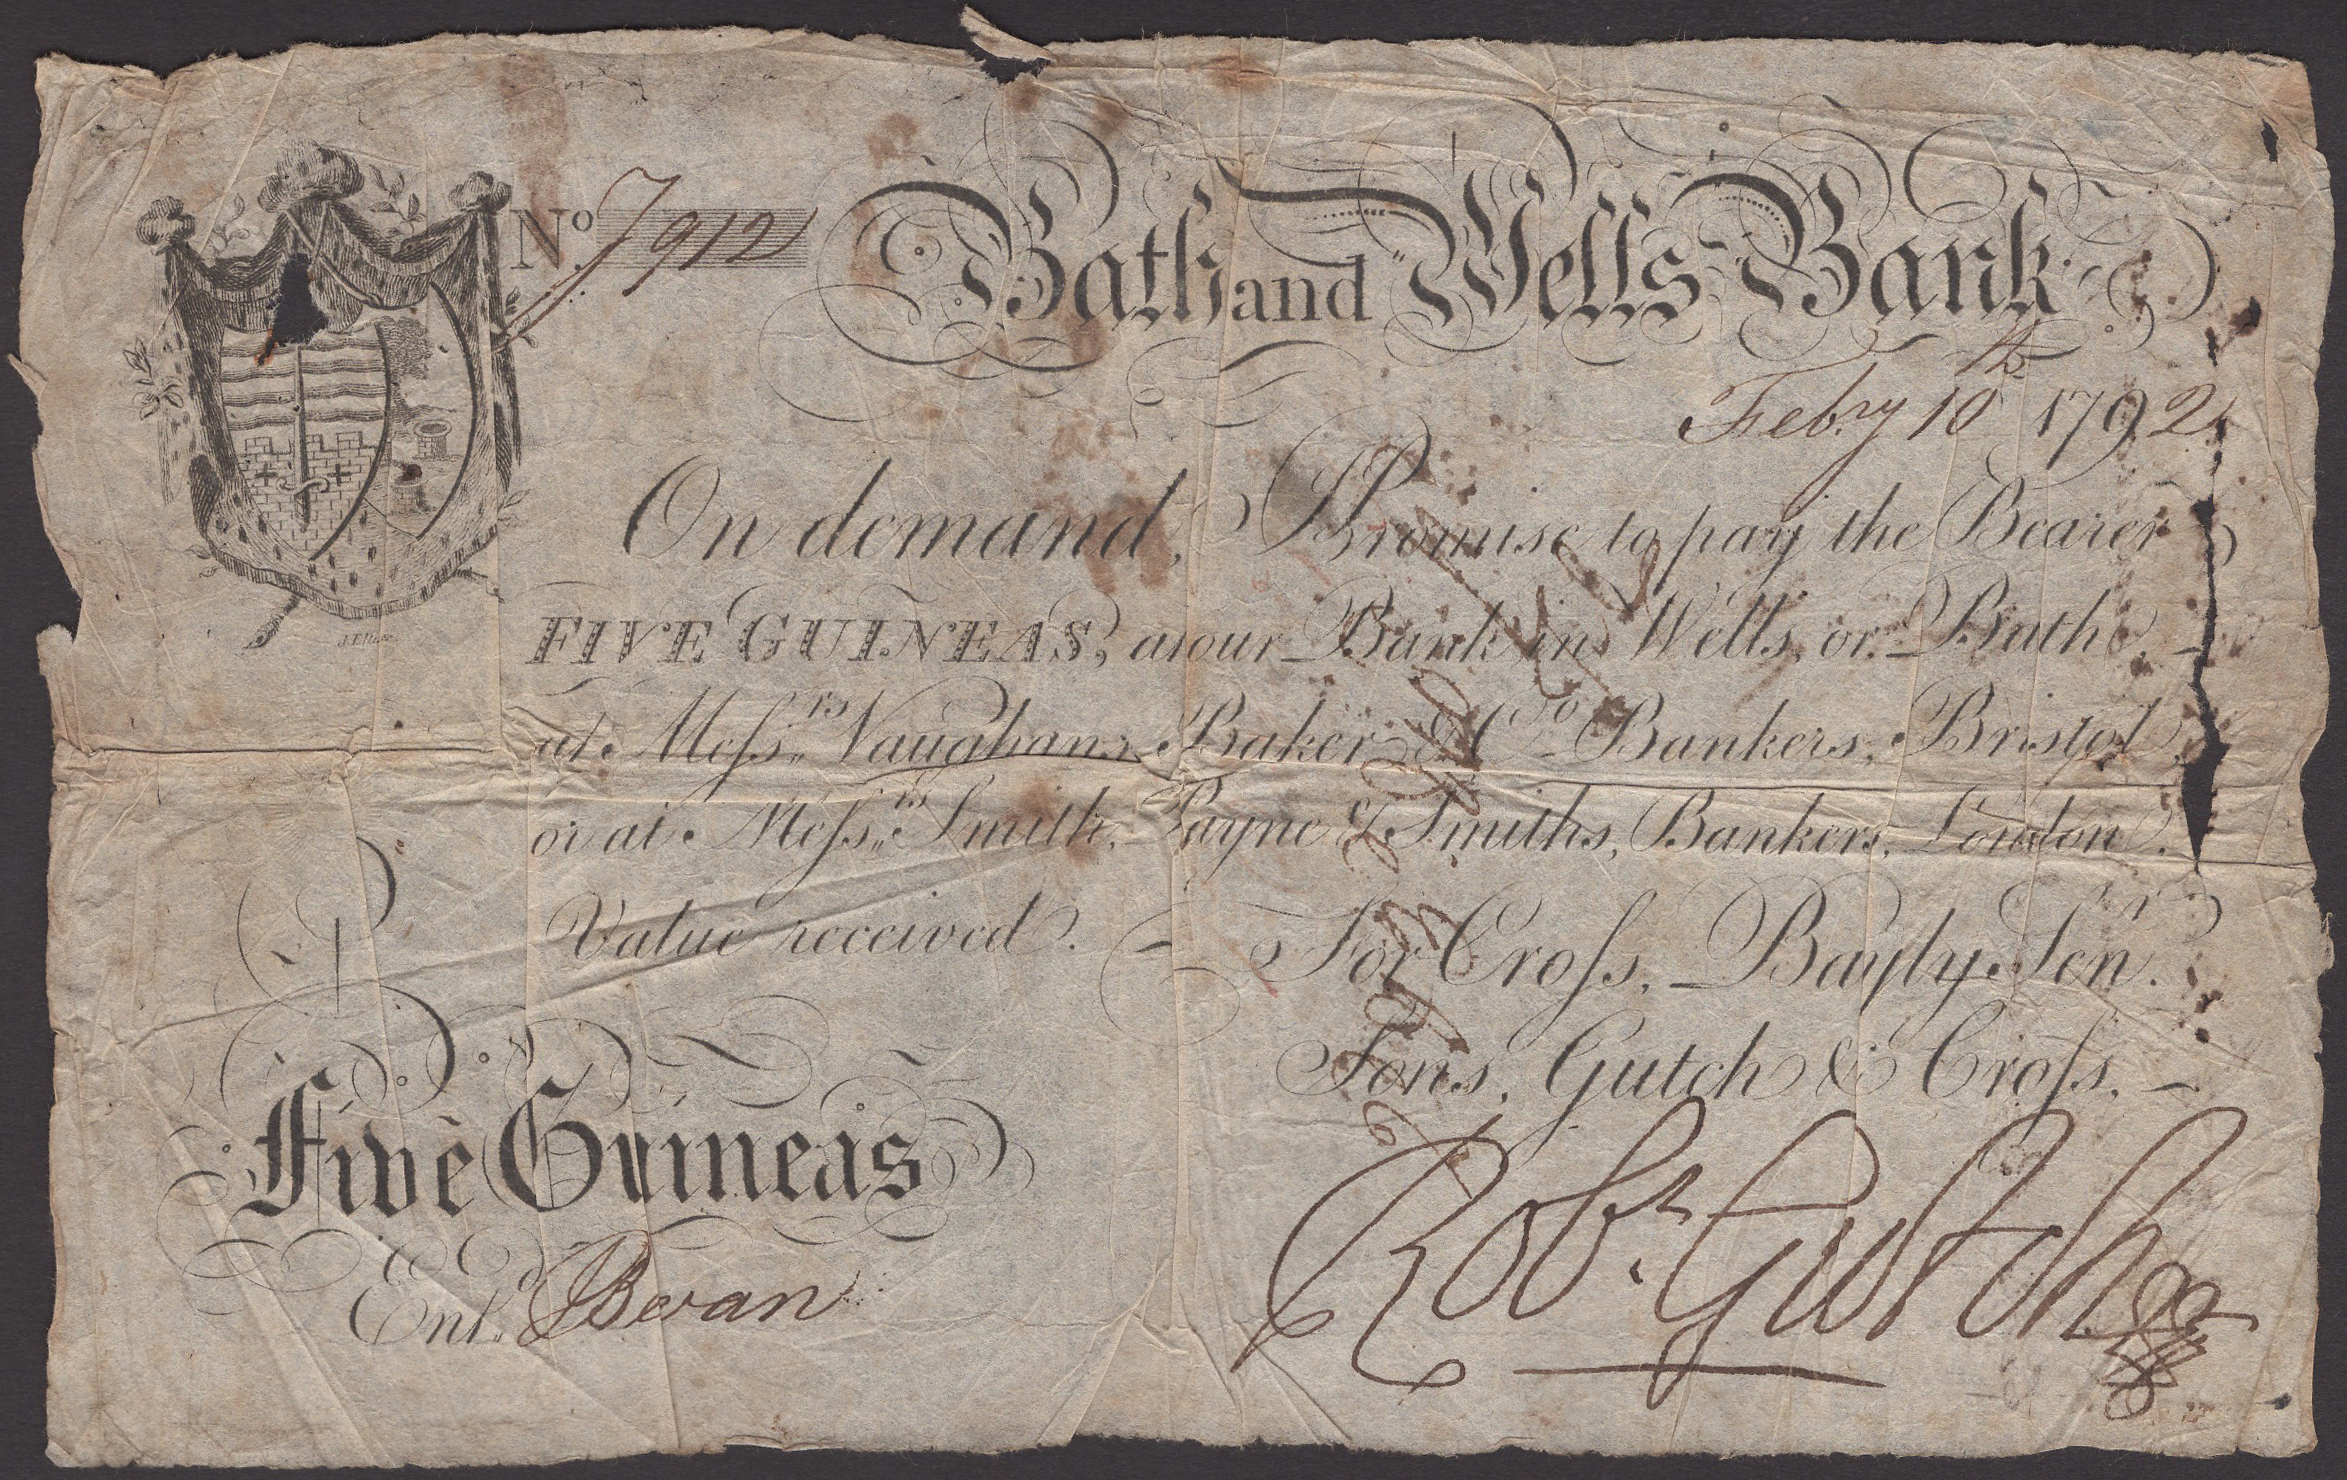 No. 7912
Bath and Wells Bank
Feb.ry 10th 1792
On demand, Promise to pay the Bearer
FIVE GUINEAS, at our Bank in Wells, or Bath,
at Meſs.rs Vaughan, Baker & Co. Bankers, Bristol,
or at Meſs.rs Smith, Payne & Smiths, Bankers, London.
Value received.
For Croſs, Bayly Senr.
Sons, Gutch & Croſs.
Five Guineas
Entd. Bevan
Robt. Gutch